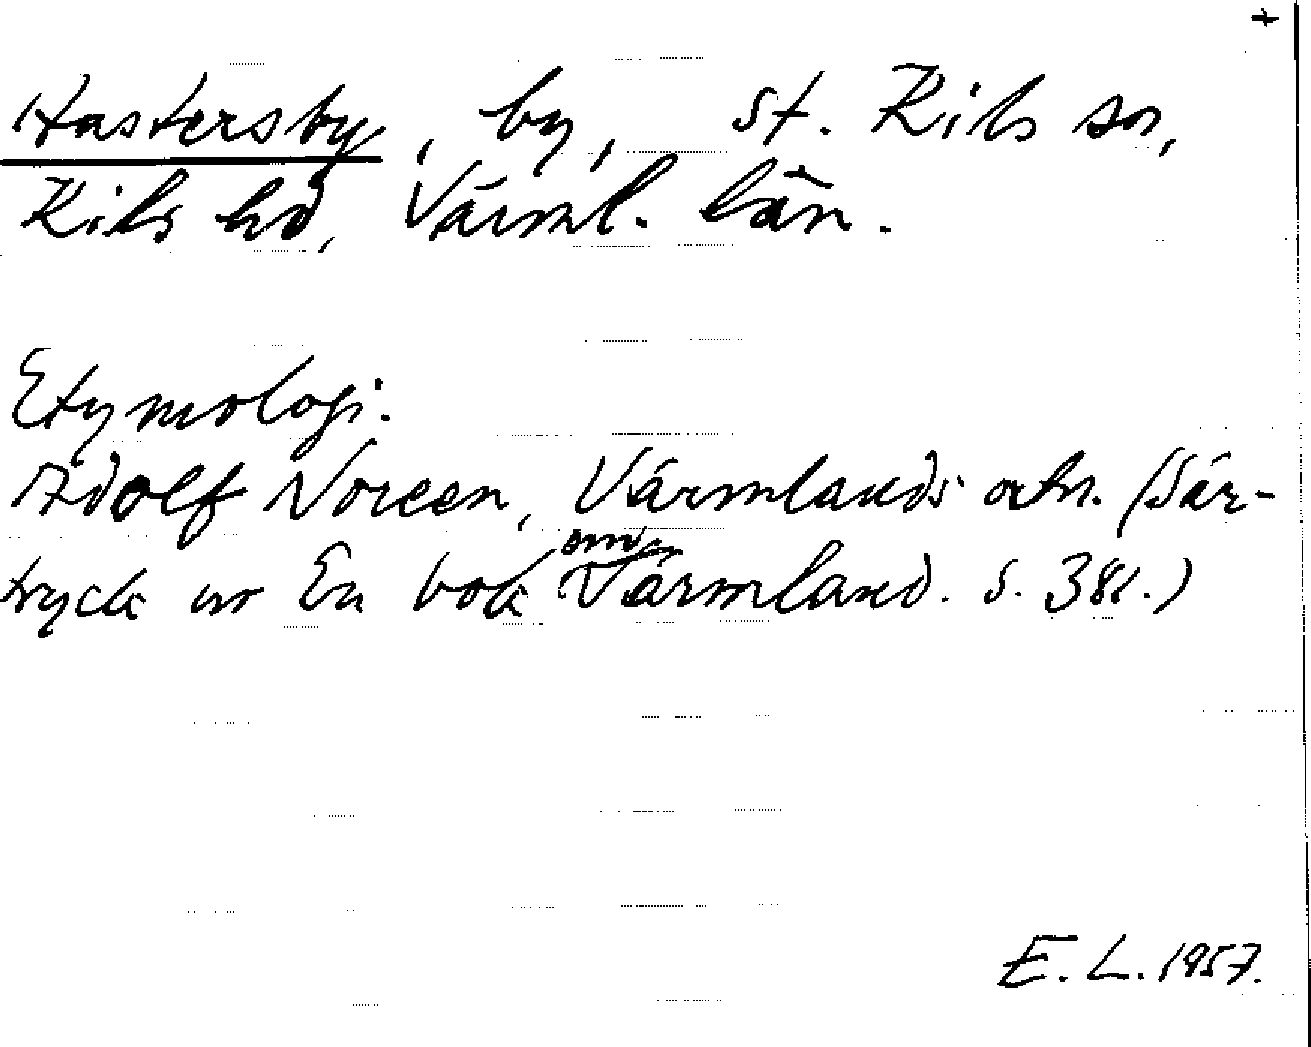 +
Hastersby, by, St. Kils sn,
Kils hd, Värml. län.
Etymologi.
Adolf Noreen, Värmlands ortn. (Sär-
tryck ur En bok om Värmland. S. 381.)
E. L. 1957.